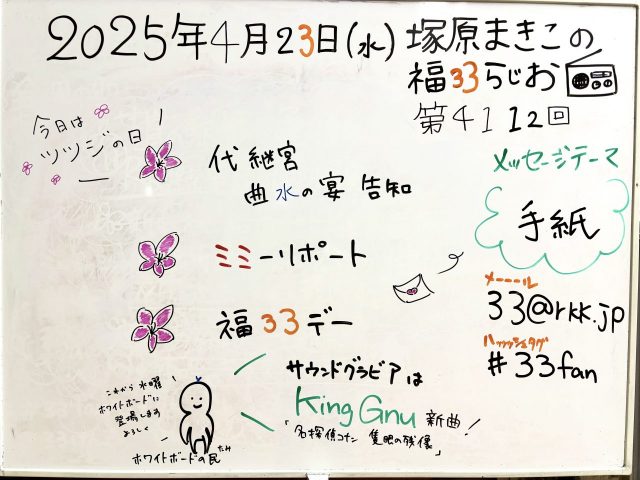 2025年4月23日(水) 塚原まきこの
福33らじお
第4112回
今日は
ツツジの日!
代継宮
曲水の宴 告知
ミミーリポート
福33デー
メッセージテーマ
手紙
メーーール
33@rkk.jp
ハッッシュタグ
#33fan
サウンドグラビアは
King Gnu 新曲!
「名探偵コナン 隻眼の残像」
これから水曜
ホワイトボードに
登場します
よろしく
ホワイトボードの民たみ